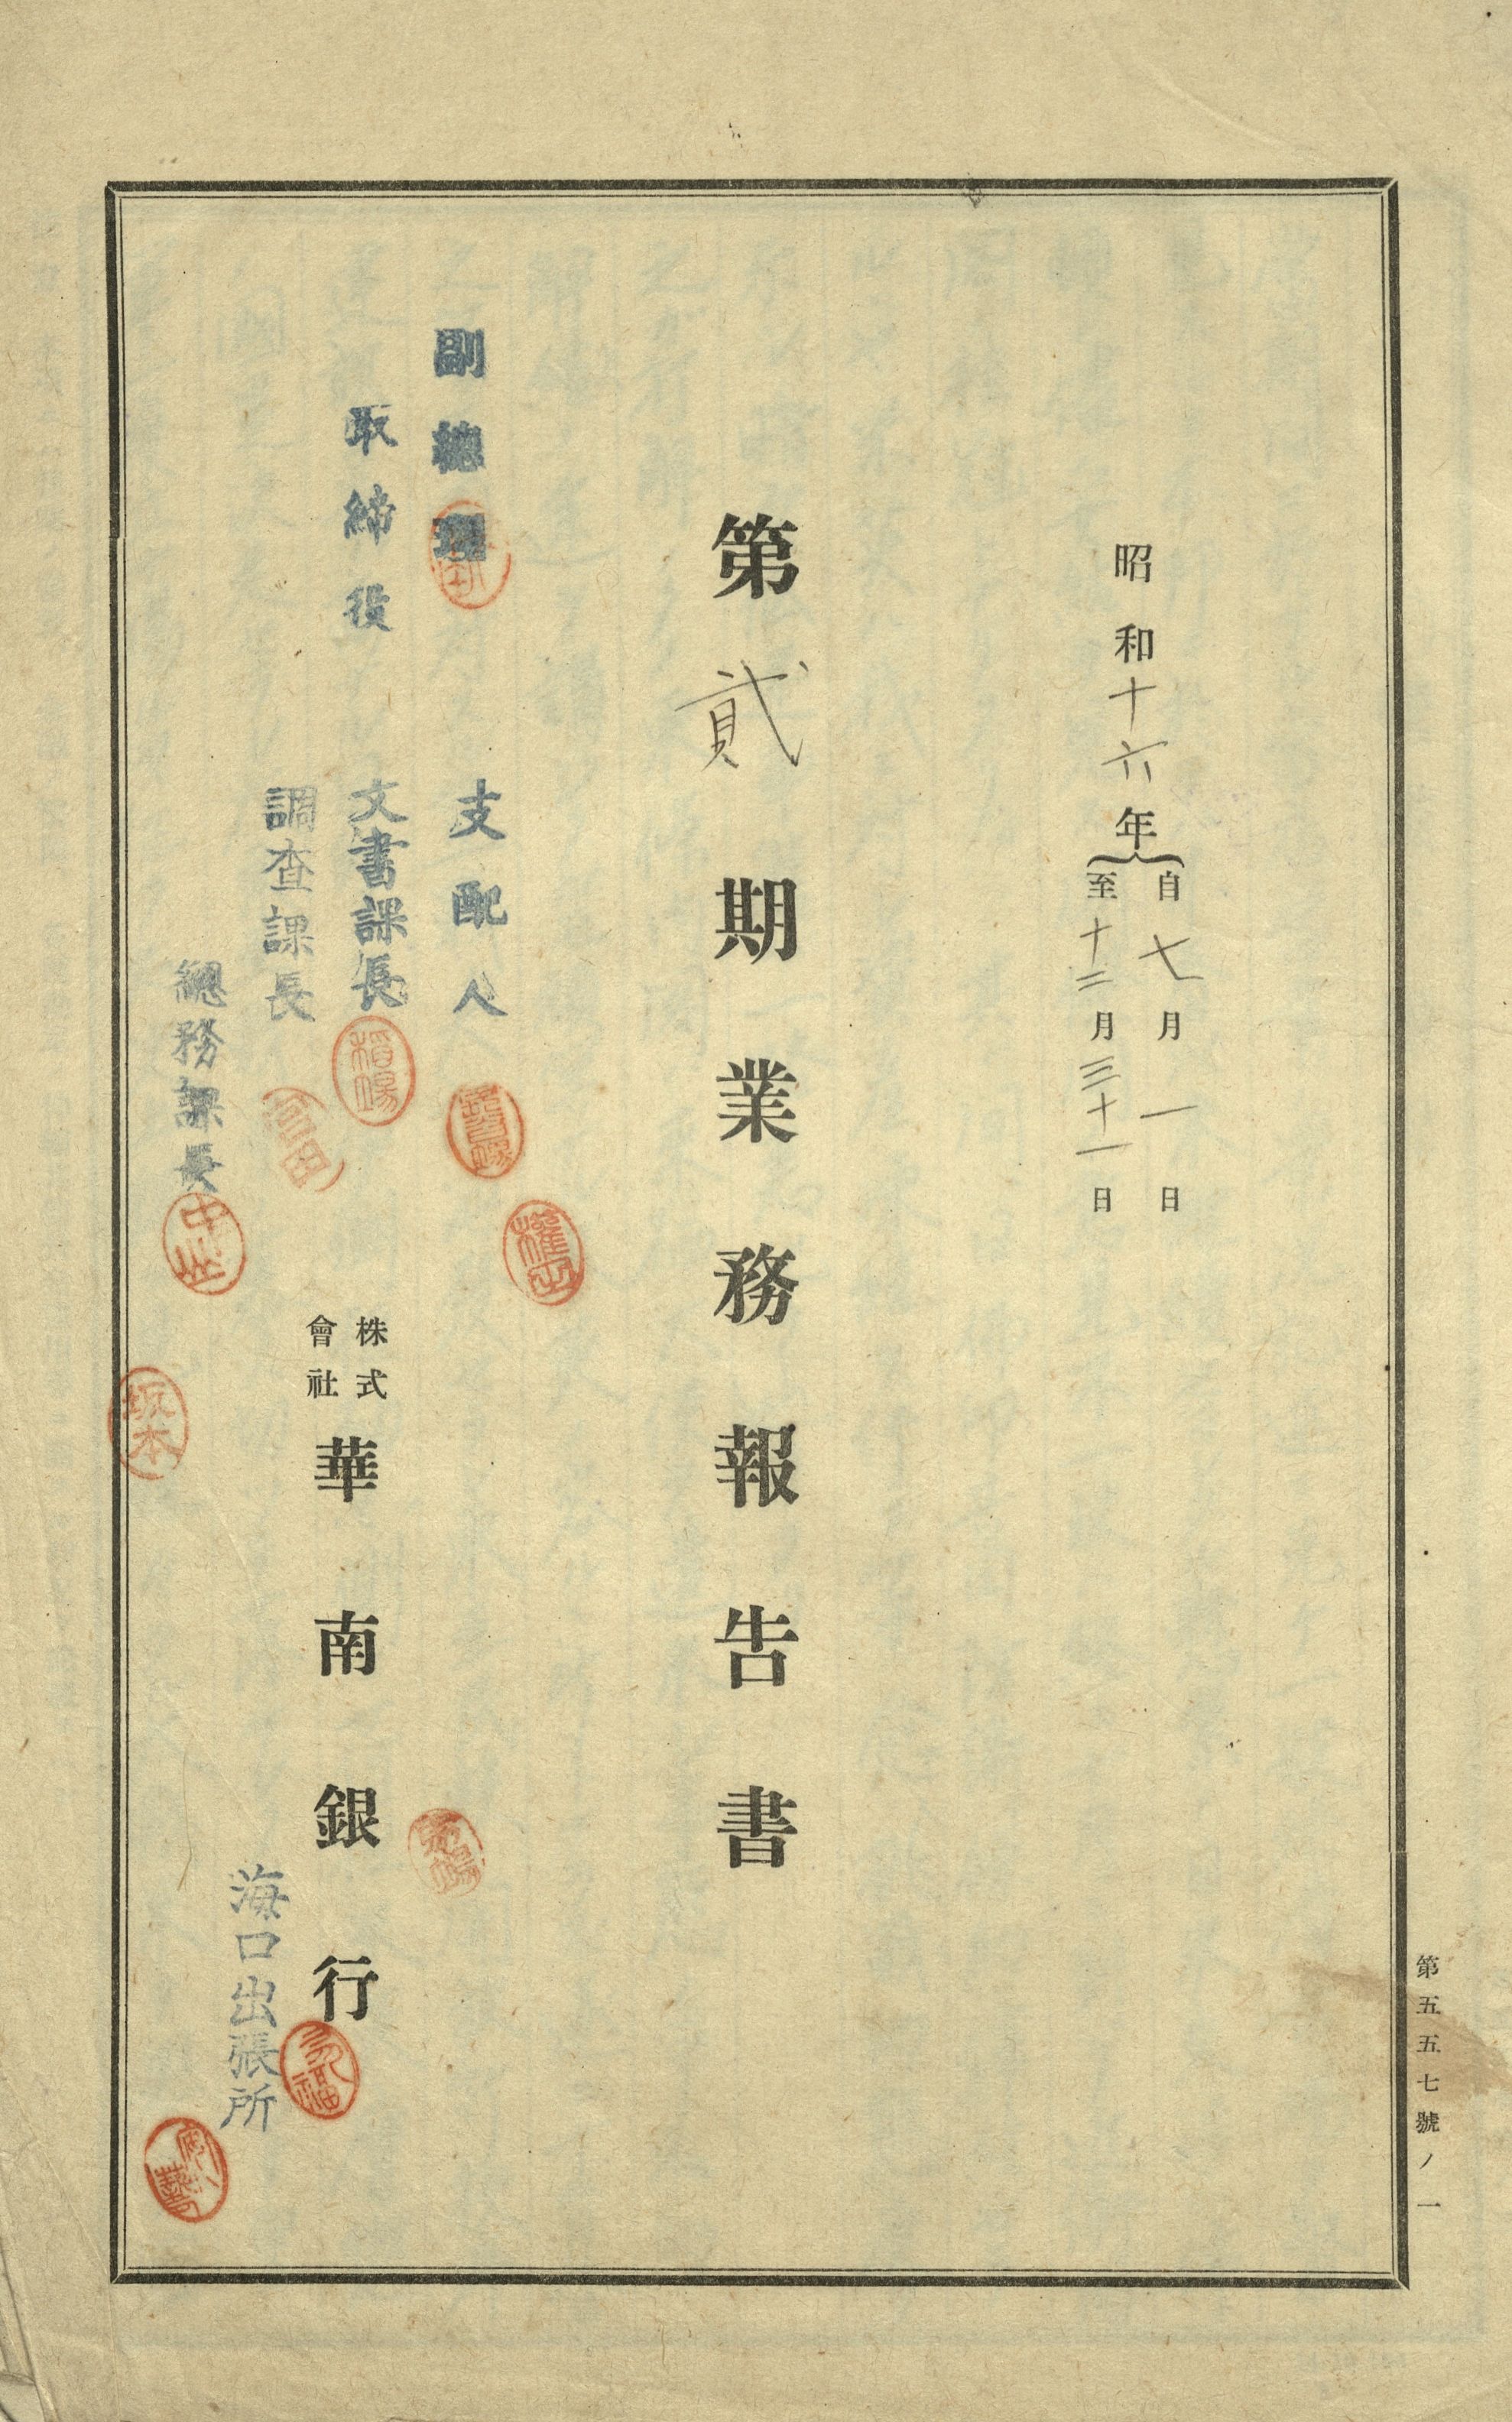 昭和十六年
自七月一日
至十二月三十一日
第貳期業務報告書
副總理
支配人
取締役
文書課長
稻場
調查課長
總務課長
坂本
株式會社華南銀行
海口出張所
第五五七號ノ一